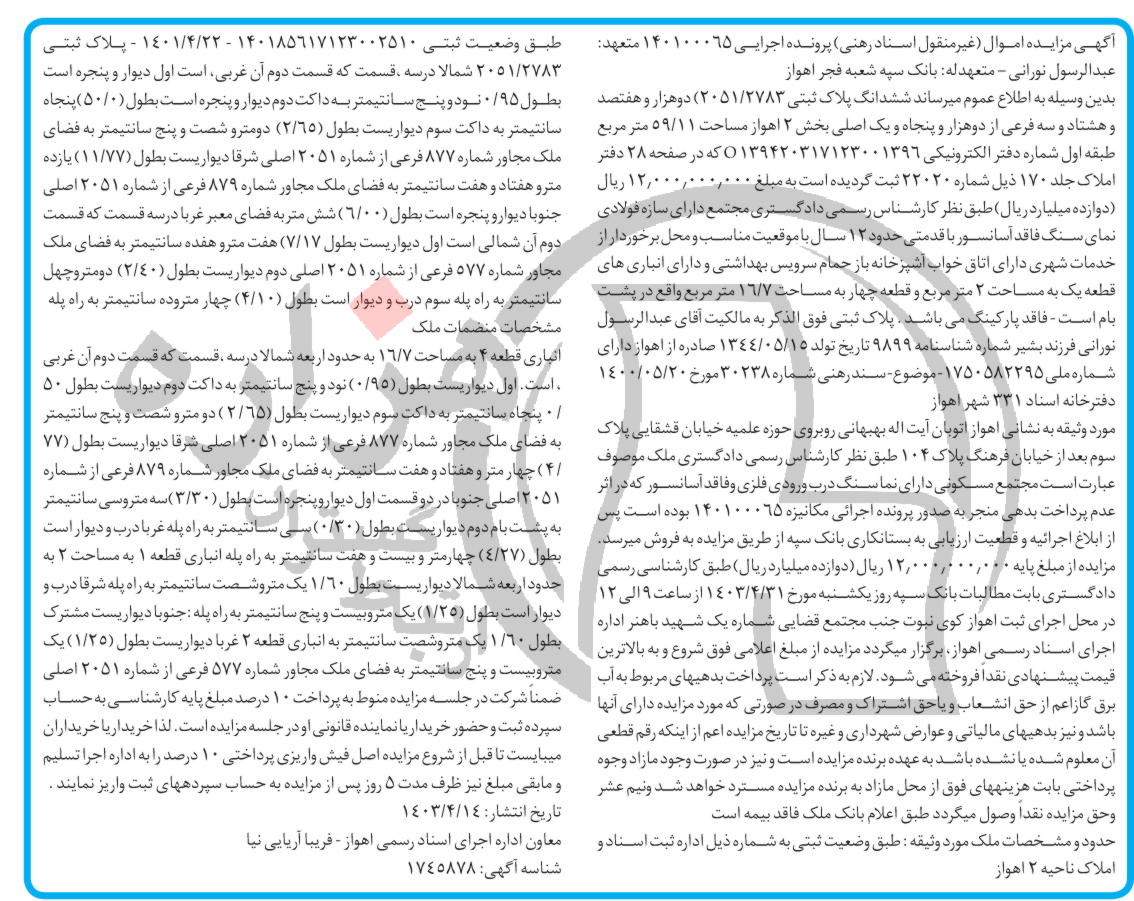 آگهـی مزایـده امـوال (غیرمنقول اسـناد رهنی) پرونـده اجرایـی ۱۴۰۱۰۰۰۶۵ متعهد:
عبدالرسول نورانی – متعهدله: بانک سپه شعبه فجر اهواز
بدین وسیله به اطلاع عموم میرساند ششدانگ پلاک ثبتی ۲۰۵۱/۲۷۸۳) دوهزار و هفتصد
و هشتاد و سه فرعی از دوهزار و پنجاه و یک اصلی بخش ۲ اهواز مساحت ۵۹/۱۱ متر مربع
طبقه اول شماره دفتر الکترونیکی ۱۳۹۴۲۰۳۱۷۱۲۳۰۰۱۳۹۶ O که در صفحه ۲۸ دفتر
املاک جلد ۱۷۰ ذیل شماره ۲۲۰۲۰ ثبت گردیده است به مبلغ ۱۲,۰۰۰,۰۰۰,۰۰۰ ریال
(دوازده میلیارد ریال) طبق نظر کارشـناس رسـمی دادگسـتری مجتمع دارای سازه فولادی
نمای سـنگ فاقد آسانسـور با قدمتی حدود ۱۲ سـال با موقعیت مناسـب و محل برخوردار از
خدمات شهری دارای اتاق خواب آشپزخانه باز حمام سرویس بهداشتی و دارای انباری های
قطعه یک به مسـاحت ۲ متر مربع و قطعه چهار به مسـاحت ۱۶/۷ متر مربع واقع در پشـت
بام اسـت - فاقد پارکینگ می باشـد . پلاک ثبتی فوق الذکر به مالکیت آقای عبدالرسـول
نورانی فرزند بشیر شماره شناسنامه ۹۸۹۹ تاریخ تولد ۱۳٤٤/۰۵/۱۵ صادره از اهواز دارای
شـماره ملی ۱۷۵۰۵۸۲۲۹۵-موضوع-سـند رهنی شـماره ۳۰۲۳۸ مورخ ۱٤۰۰/۰۵/۲۰
دفترخانه اسناد ۳۳۱ شهر اهواز
مورد وثیقه به نشانی اهواز اتوبان آیت اله بهبهانی روبروی حوزه علمیه خیابان قشقایی پلاک
سوم بعد از خیابان فرهنگ پلاک ۱۰۴ طبق نظر کارشناس رسمی دادگستری ملک موصوف
عبارت اسـت مجتمع مسـکونی دارای نما سـنگ درب ورودی فلزی وفاقد آسانسـور که در اثر
عدم پرداخت بدهی منجر به صدور پرونده اجرائی مکانیزه ۱۴۰۱۰۰۰۶۵ بوده اسـت پس
از ابلاغ اجرائیه و قطعیت ارزیابی به بستانکاری بانک سپه از طریق مزایده به فروش میرسد.
مزایده از مبلغ پایه ۱۲,۰۰۰,۰۰۰,۰۰۰ ریال (دوازده میلیارد ریال) طبق کارشناسی رسمی
دادگسـتری بابت مطالبات بانک سـپه روز یکشـنبه مورخ ۱۴۰۳/۴/۳۱ از ساعت ۹ الی ۱۲
در محل اجرای ثبت اهواز کوی نبوت جنب مجتمع قضایی شـماره یک شـهید باهنر اداره
اجرای اسـناد رسـمی اهواز، برگزار میگردد مزایده از مبلغ اعلامی فوق شروع و به بالاترین
قیمت پیشـنهادی نقداً فروخته می شـود. لازم به ذکر اسـت پرداخت بدهیهای مربوط به آب
برق گاز اعم از حق انشـعاب و یا حق اشـتراک و مصرف در صورتی که مورد مزایده دارای آنها
باشد و نیز بدهیهای مالیاتی و عوارض شهرداری و غیره تا تاریخ مزایده اعم از اینکه رقم قطعی
آن معلوم شـده یا نشـده باشـد به عهده برنده مزایده اسـت و نیز در صورت وجود مازاد وجوه
پرداختی بابت هزینههای فوق از محل مازاد به برنده مزایده مسـترد خواهد شـد ونیم عشر
وحق مزایده نقداً وصول میگردد طبق اعلام بانک ملک فاقد بیمه است
حدود و مشـخصات ملک مورد وثیقه : طبق وضعیت ثبتی به شـماره ذیل اداره ثبت اسـناد و
املاک ناحیه ۲ اهواز
طبـق وضعیـت ثبتـی ۱۴۰۱۸۵۶۱۷۱۲۳۰۰۲۵۱۰ - ۱٤۰۱/۴/۲۲ - پـلاک ثبتـی
۲۰۵۱/۲۷۸۳ شمالا درسه ،قسمت که قسمت دوم آن غربی، است اول دیوار و پنجره است
بطـول ۰/۹۵ نـود و پنـج سـانتیمتر بـه داکت دوم دیوار و پنجره اسـت بطول (۵۰/۰) پنجاه
سانتیمتر به داکت سوم دیواریست بطول (۲/٦۵) دومترو شصت و پنج سانتیمتر به فضای
ملک مجاور شماره ۸۷۷ فرعی از شماره ۲۰۵۱ اصلی شرقا دیواریست بطول (۱۱/۷۷) یازده
مترو هفتاد و هفت سانتیمتر به فضای ملک مجاور شماره ۸۷۹ فرعی از شماره ۲۰۵۱ اصلی
جنوبا دیوارو پنجره است بطول (۶/۰۰) شش متر به فضای معبر غربا درسه قسمت که قسمت
دوم آن شمالی است اول دیواریست بطول ۷/۱۷) هفت مترو هفده سانتیمتر به فضای ملک
مجاور شماره ۵۷۷ فرعی از شماره ۲۰۵۱ اصلی دوم دیواریست بطول (۲/٤۰) دومتروچهل
سانتیمتر به راه پله سوم درب و دیوار است بطول (۴/۱۰) چهار متروده سانتیمتر به راه پله
مشخصات منضمات ملک
انباری قطعه ۴ به مساحت ۱۶/۷ به حدود اربعه شمالا درسه ،قسمت که قسمت دوم آن غربی
، است. اول دیواریست بطول (۰/۹۵) نود و پنج سانتیمتر به داکت دوم دیواریست بطول ۵۰
/۰ پنجاه سانتیمتر به داکت سوم دیواریست بطول (۲/٦۵) دو مترو شصت و پنج سانتیمتر
به فضای ملک مجاور شماره ۸۷۷ فرعی از شماره ۲۰۵۱ اصلی شرقا دیواریست بطول (۷۷
/۴) چهار متر و هفتاد و هفت سـانتیمتر به فضای ملک مجاور شـماره ۸۷۹ فرعی از شـماره
۲۰۵۱ اصلی جنوبا در دو قسمت اول دیوار و پنجره است بطول (۳/۳۰) سه متروسی سانتیمتر
به پشـت بام دوم دیواریسـت بطول (۰/۳۰) سـی سـانتیمتر به راه پله غربا درب و دیوار است
بطول (٤/۲۷) چهارمتر و بیست و هفت سانتیمتر به راه پله انباری قطعه ۱ به مساحت ۲ به
حدود اربعه شـمالا دیواریسـت بطول ۱/۶۰ یک متروشـصت سانتیمتر به راه پله شرقا درب و
دیوار است بطول (۱/۲۵) یک متروبیست و پنج سانتیمتر به راه پله :جنوبا دیواریست مشترک
بطول ۱/۶۰ یک متروشصت سانتیمتر به انباری قطعه ۲ غربا دیواریست بطول (۱/۲۵) یک
متروبیست و پنج سانتیمتر به فضای ملک مجاور شماره ۵۷۷ فرعی از شماره ۲۰۵۱ اصلی
ضمناً شرکت در جلسـه مزایده منوط به پرداخت ۱۰ درصد مبلغ پایه کارشناسـی به حسـاب
سپرده ثبت و حضور خریدار یا نماینده قانونی او در جلسه مزایده است. لذا خریدار یا خریداران
میبایست تا قبل از شروع مزایده اصل فیش واریزی پرداختی ۱۰ درصد را به اداره اجرا تسلیم
و مابقی مبلغ نیز ظرف مدت ۵ روز پس از مزایده به حساب سپردههای ثبت واریز نمایند .
تاریخ انتشار: ۱٤۰۳/۴/۱٤
معاون اداره اجرای اسناد رسمی اهواز - فریبا آریایی نیا
شناسه آگهی: ۱۷٤۵۸۷۸
هزاره